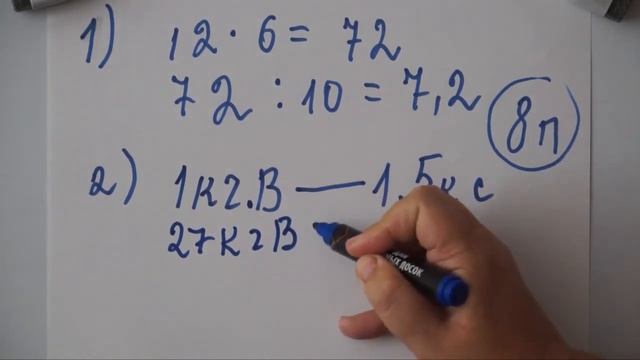 1) 12 · 6 = 72
72 : 10 = 7,2
8п
2) 1кг.В — 1,5к с
27кгВ
ЫХ ДОСОК